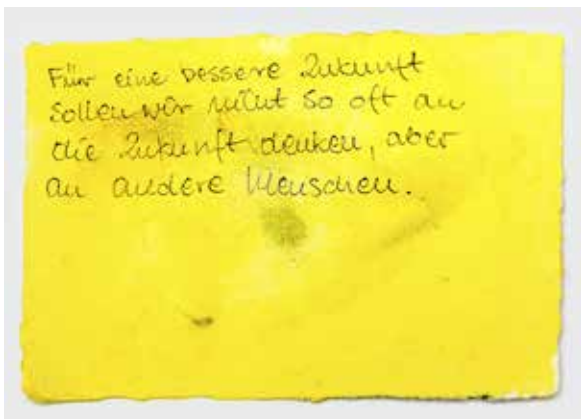 Für eine bessere Zukunft
sollen wir nicht so oft an
die Zukunft denken, aber
an andere Menschen.